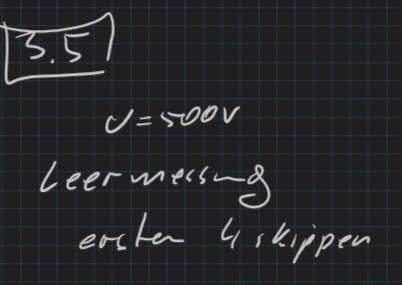 3.5
U=500V
Leermessung
ersten 4 skippen